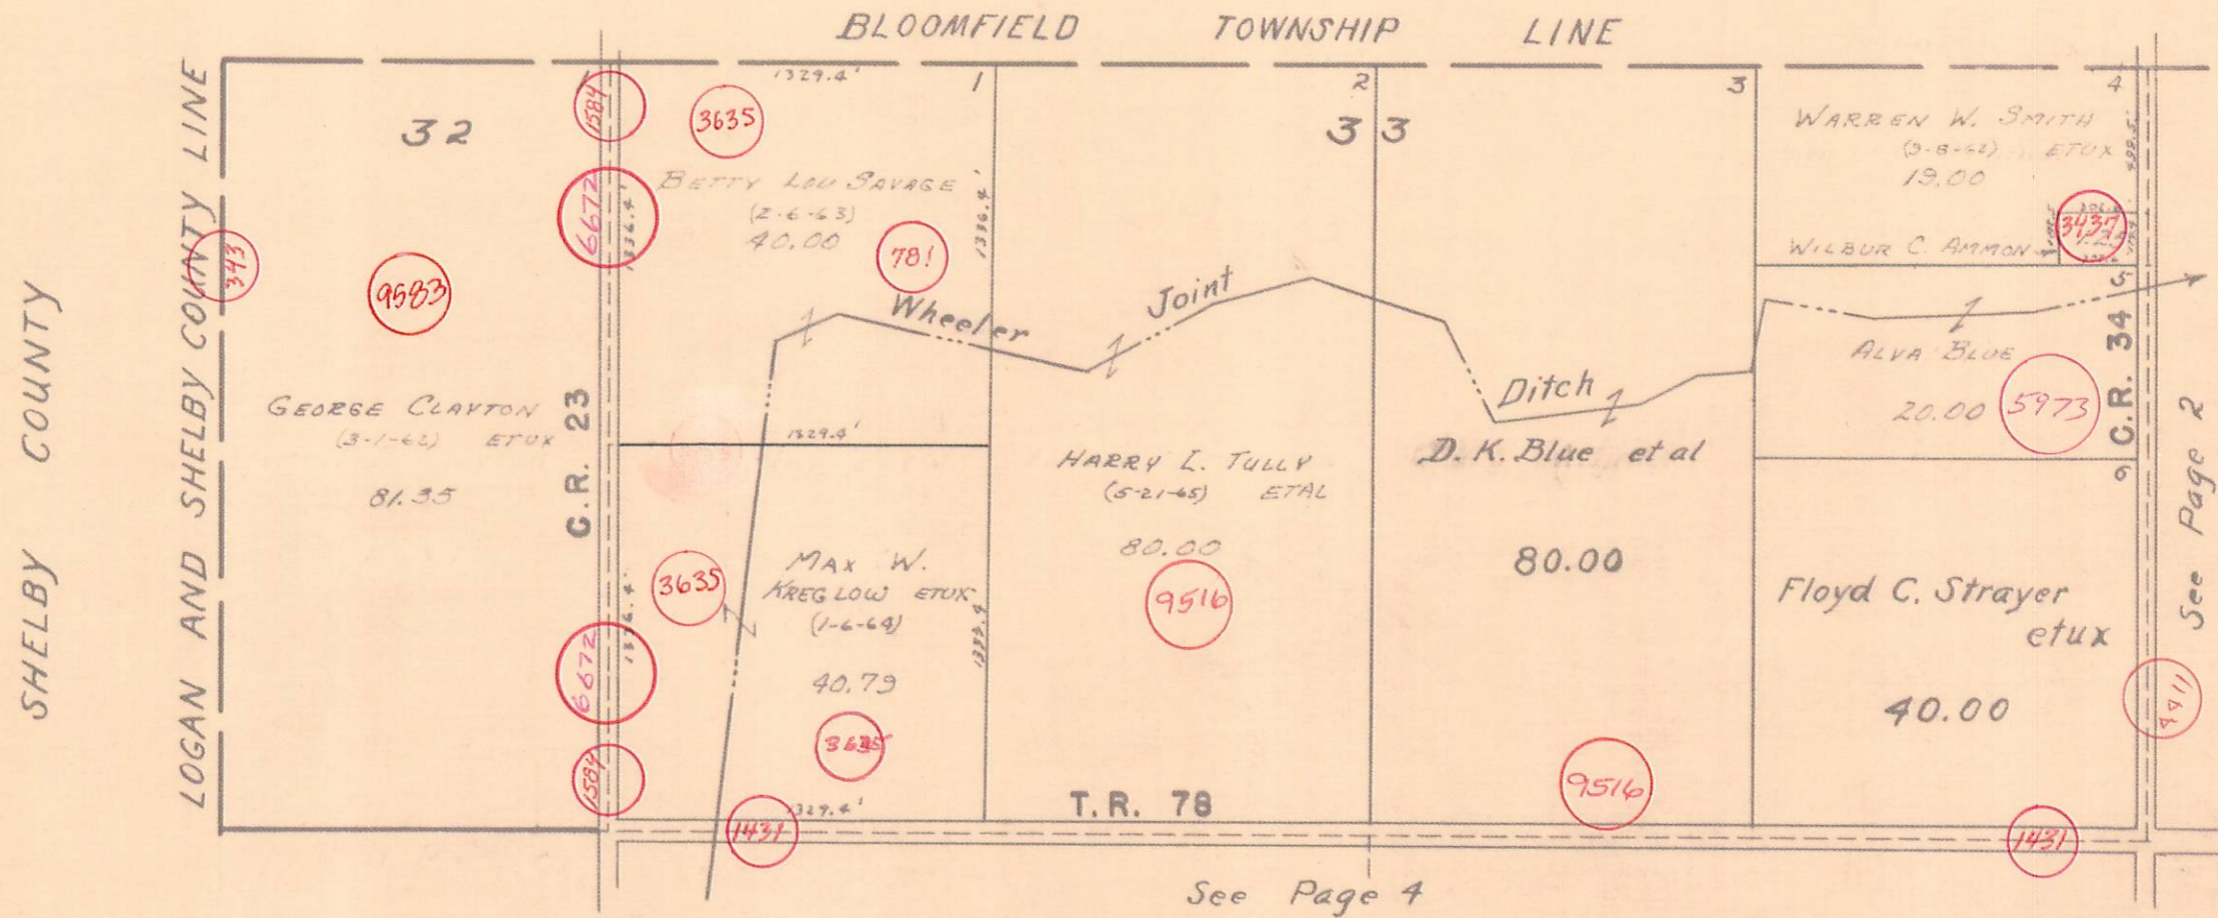 BLOOMFIELD TOWNSHIP LINE
SHELBY COUNTY
LOGAN AND SHELBY COUNTY LINE
32
343
9583
GEORGE CLAYTON
(3-1-62) ETUX
81.35
1
1584
6672
C.R. 23
6672
1584
1329.4'
3635
1
BETTY LOU SAVAGE
(2-6-63)
40.00
781
1336.4'
1336.4'
Wheeler Joint Ditch
1329.4'
3635
1336.4'
MAX W.
KREGLOW ETUX
(1-6-64)
40.79
3635
1329.4'
1431
2
33
HARRY L. TULLY
(5-21-65) ETAL
80.00
9516
T.R. 78
3
D. K. Blue et al
80.00
9516
4
WARREN W. SMITH
(3-8-62) ETUX
19.00
WILBUR C. AMMON
3437
5
ALVA BLUE
20.00
5973
C.R. 34
6
Floyd C. Strayer
etux
40.00
4411
1431
See Page 2
See Page 4